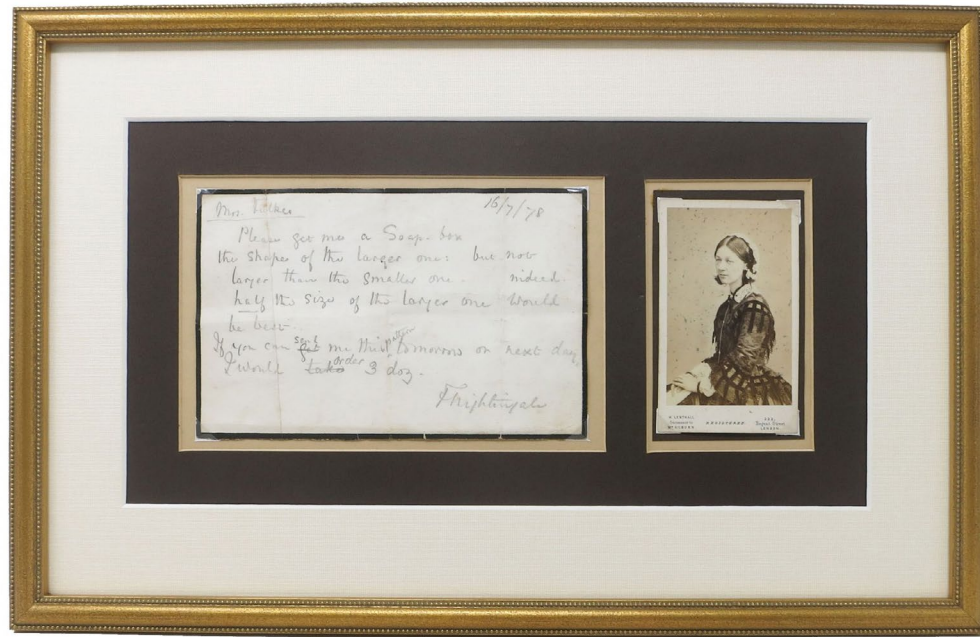 16/7/78
Mrs.
Please get me a Soap-box
the shape of the larger one: but not
larger than the smaller one. indeed
half the size of the larger one would
be best.
If you can send get me this pattern tomorrow or next day,
I would take order 3 doz.
FNightingale
REGISTERED.
LONDON.